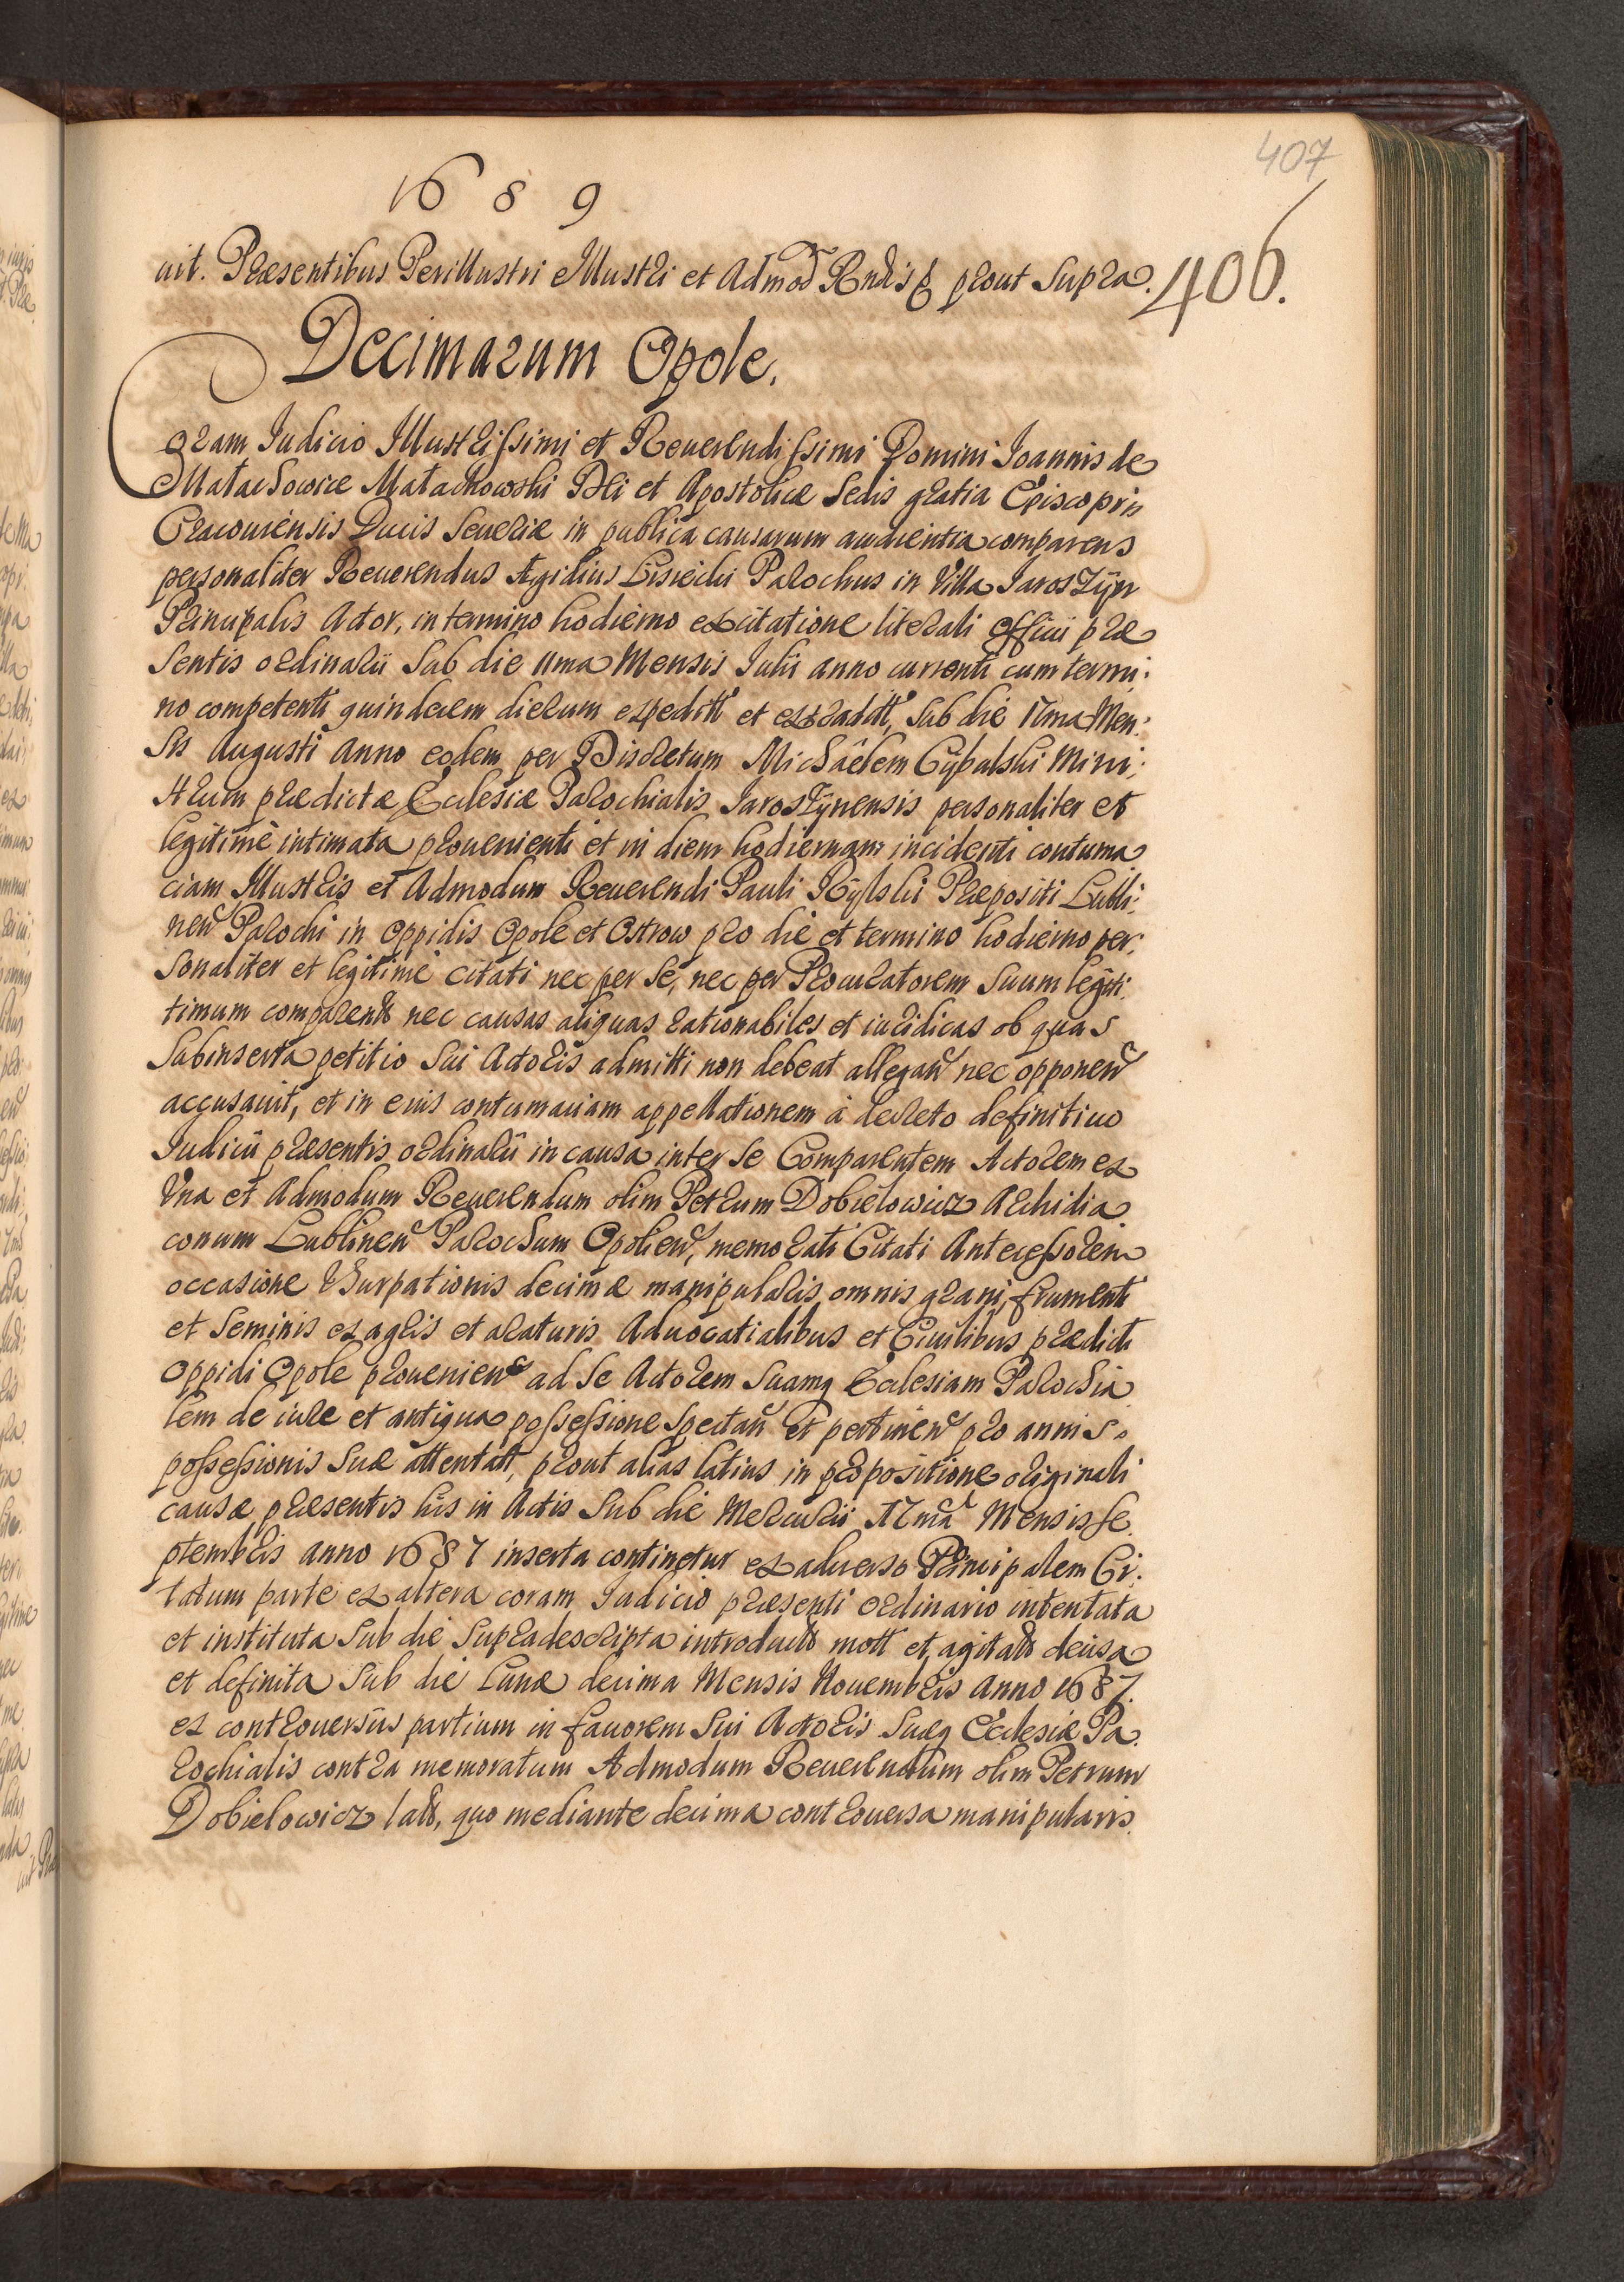 407
1689
406.
uit. Præsentibus Perillustri Illustri et Admod Rndisq prout Supra.
Decimarum Opole.
Coram Iudicio Illustrissimi et Reuerendissimi Domini Ioannis de
Małachowice Małachowski Dei et Apostolicæ Sedis gratia Episcopi
Cracouiensis Ducis Seueriæ in publica causarum audientia comparens
personaliter Reuerendus Ægidius Lisiecki Parochus in Villa Iaroszÿn
Principalis Actor, in termino hodierno ex citatione literali Officii præ
sentis ordinarii Sub die 11ma Mensis Iulii anno currenti cum termi:
no competenti quindecem dierum expeditt et extraditt, Sub die 17ma Men:
sis Augusti Anno eodem per Discretum Michâelem Cybulski Mini:
strum prædictæ Ecclesiæ Parochialis Iaroszÿnensis personaliter et
legitimè intimata prouenienti et in diem hodiernam incidenti contuma
ciam Illustris et Admodum Reuerendi Pauli Rÿlski Præpositi Lubli:
nen Parochi in Oppidis Opole et Ostrow pro die et termino hodierno per:
sonaliter et legitimè citati nec per Se, nec per Procuratorem Suum legiti:
timum comparents nec causas aliquas rationabiles et iuridicas ob quas
Subinserta petitio Sui Actoris admitti non debeat allegan nec opponen
accusauit, et in eius contumaciam appellationem à decreto definitiuo
Iudicii præsentis ordinarii in causa inter Se Comparentem Actorem ex
Vna et Admodum Reuerendum olim Petrum Dobielowicz Archidia
conum Lublinen Parochum Opolien, memorati Citati Antecessorem
occasione Vsurpationis decimæ manipularis omnis grani, frumenti
et Seminis ex agris et araturis Aduocatialibus et Ciuilibus prædicti
Oppidi Opole prouenien ad Se Actorem Suamq Ecclesiam Parochia
lem de iure et antiqua possessione Spectan et pertinen pro annis
possessionis Suæ attentatt, prout alias latius in propositione originali
causæ præsentis his in Actis Sub die Mercurii 17ma Mensis Se
ptembris anno 1687 inserta continetur ex aduerso Principalem Ci:
tatum parte ex altera coram Iudicio præsenti ordinario intentata
et instituta Sub die Supradescripta introducts mott et agitats decisa
et definita Sub die Lunæ decima Mensis Nouembris Anno 1687.
ex controuersiis partium in fauorem Sui Actoris Suæq Ecclesiæ Pa
rochialis contra memoratum Admodum Reuerendum olim Petrum
Dobielowicz lats, quo mediante decima controuersa manipularis